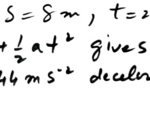 s = 8 m, t = 2
+ ½ a t² gives
44 m s⁻² decele